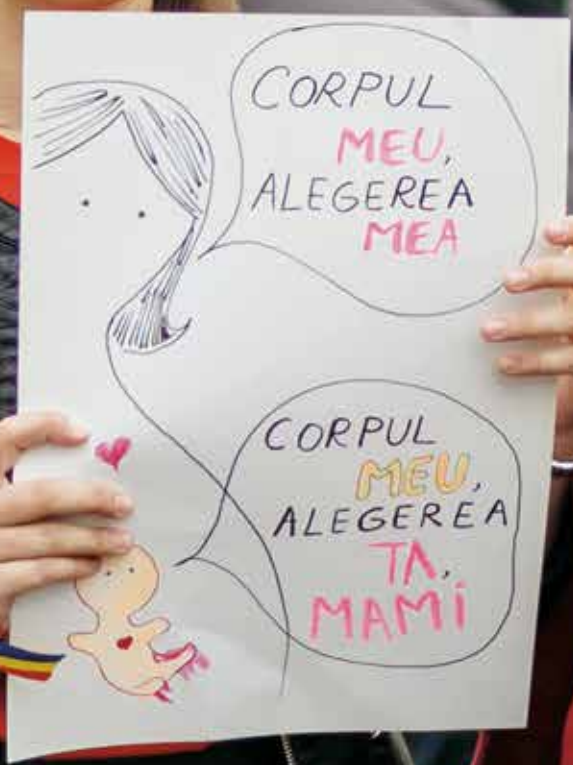 CORPUL
MEU,
ALEGEREA
MEA
CORPUL
MEU,
ALEGEREA
TA,
MAMI